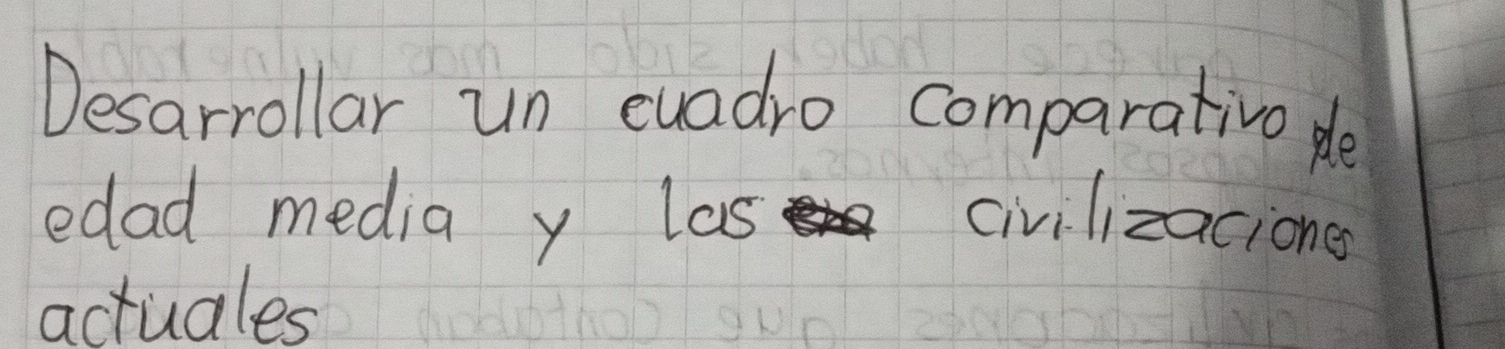 Desarrollar un cuadro comparativo de
edad media y las civilizaciones
actuales